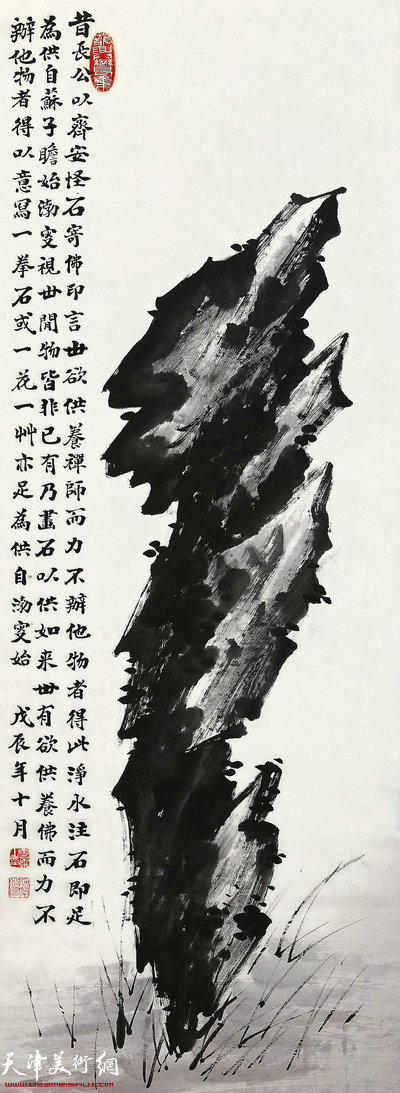 昔長公以齊安怪石寄佛印言世欲供養禪師而力不辦他物者得此淨水注石即足
為供自蘇子瞻始渤叟視世間物皆非已有乃畫石以供如来世有欲供養佛而力不
辦他物者得以意寫一拳石或一花一艸亦足為供自渤叟始 戊辰年十月
天津美術網
www.022meishu.com